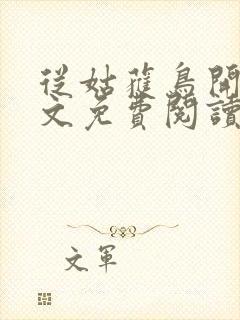 從姑蘿鳥開
文免費閱讀
文軍